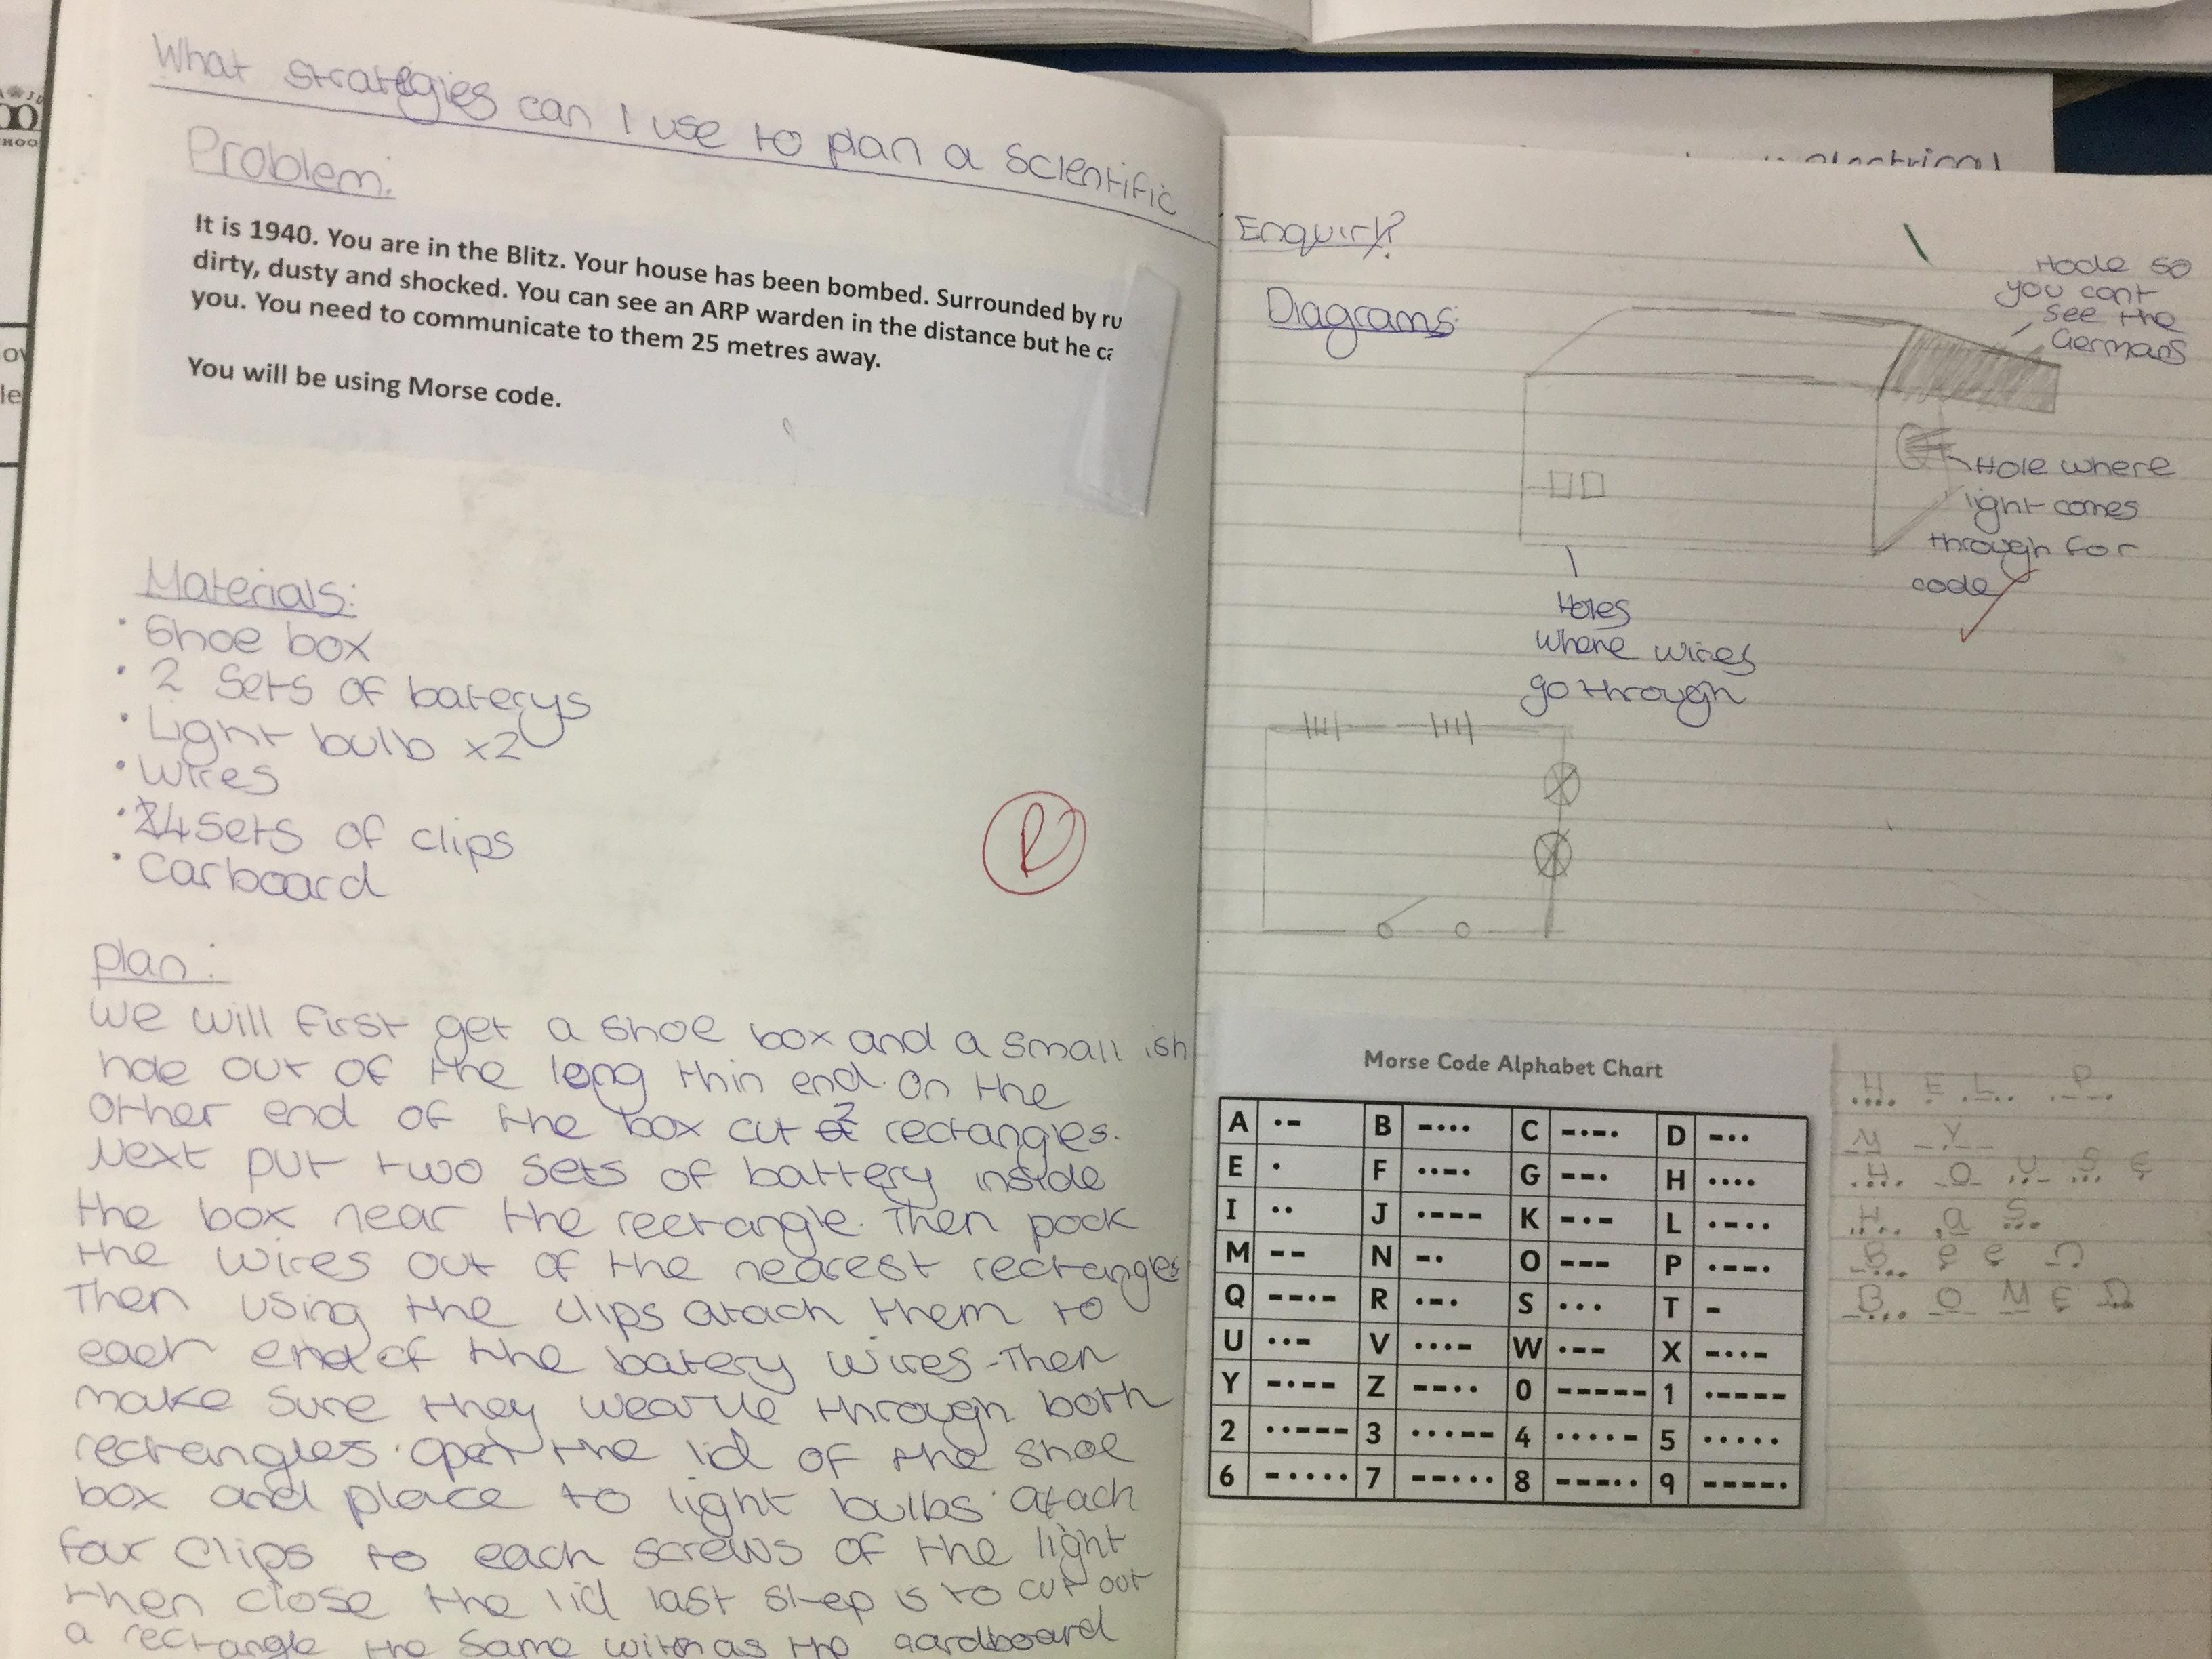 What strategies can I use to plan a Scientific
Problem:
It is 1940. You are in the Blitz. Your house has been bombed. Surrounded by ru
dirty, dusty and shocked. You can see an ARP warden in the distance but he ca
you. You need to communicate to them 25 metres away.
You will be using Morse code.
Materials:
• Shoe box
• 2 Sets of baterys
• Light bulb x2
• Wires
• 4 sets of clips
• Carboard
R
plan:
We will first get a shoe box and a small ish
hole out of the long thin end. On the
other end of the box cut 2 rectangles.
Next put two sets of battery inside
the box near the rectangle. Then pock
the wires out of the nearest rectangles
Then using the clips atach them to
each end of the batery wires. Then
make sure they weave through both
rectangles. open the lid of the shoe
box and place to light bulbs. atach
four clips to each screws of the light
then close the lid last step is to cut out
a rectangle the same with as the cardboard
electrical
Enquiry?
Diagrams:
so
you cant
see the
Germans
Hole where
light comes
through for
code
Holes
where wires
go through
Morse Code Alphabet Chart
A •– B –••• C –•–• D –••
E • F ••–• G ––• H ••••
I •• J •––– K –•– L •–••
M –– N –• O ––– P •––•
Q ––•– R •–• S ••• T –
U ••– V •••– W •–– X –••–
Y –•–– Z ––•• 0 ––––– 1 •––––
2 ••––– 3 •••–– 4 ••••– 5 •••••
6 –•••• 7 ––••• 8 –––•• 9 ––––•
H E L P
M Y
H O U S E
H a S
B e e n
B O M E D